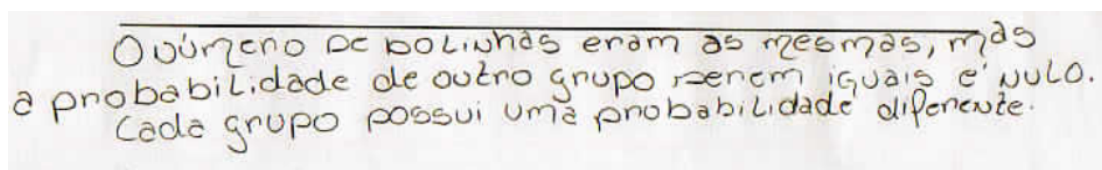 O número de bolinhas eram as mesmas, mas
a probabilidade de outro grupo serem iguais é nulo.
Cada grupo possui uma probabilidade diferente.